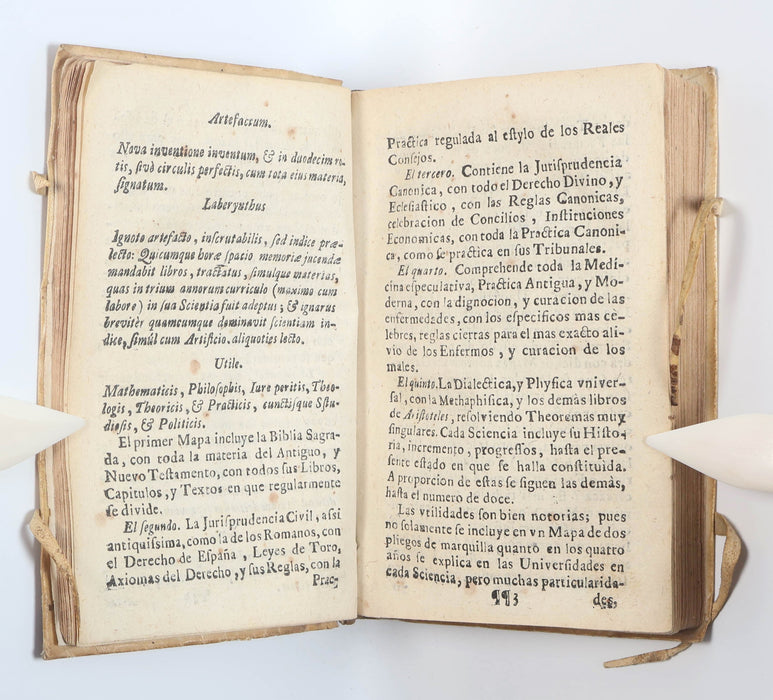 Artefactum.
Nova inventione inventum, & in duodecim ro-
tis, sivè circulis perfectis, cum tota eius materia,
signatum.
Laberynthus
Ignoto artefacto, inscrutabilis, sed indice præ-
lecto: Quicumque horæ spacio memoriæ jucundæ
mandabit libros, tractatus, simulque materias,
quas in trium annorum curriculo (maximo cum
labore) in sua Scientia fuit adeptus; & ignarus
brevitèr quamcumque dominavit scientiam in-
dice, simúl cum Artificio, aliquoties lecto.
Utile.
Mathematicis, Philosophis, Iure peritis, Theo-
logis, Theoricis, & Practicis, cunctisque Sstu-
diosis, & Politicis.
El primer Mapa incluye la Biblia Sagra-
da, con toda la materia del Antiguo, y
Nuevo Testamento, con todos sus Libros,
Capitulos, y Textos en que regularmente
se divide.
El segundo. La Jurisprudencia Civil, assi
antiquissima, como la de los Romanos, con
el Derecho de España, Leyes de Toro,
Axiomas del Derecho, y sus Reglas, con la
Prac-
Practica regulada al estylo de los Reales
Consejos.
El tercero. Contiene la Jurisprudencia
Canonica, con todo el Derecho Divino, y
Eclesiastico, con las Reglas Canonicas,
celebracion de Concilios, Instituciones
Economicas, con toda la Practica Canoni-
ca, como se practica en sus Tribunales.
El quarto. Comprehende toda la Medi-
cina especulativa, Practica Antigua, y Mo-
derna, con la dignocion, y curacion de las
enfermedades, con los especificos mas ce-
lebres, reglas ciertas para el mas exacto ali-
vio de los Enfermos, y curacion de los
males.
El quinto. La Dialectica, y Physica vniver-
sal, con la Methaphisica, y los demàs libros
de Aristoteles, resolviendo Theoremas muy
singulares. Cada Sciencia incluye su Histo-
ria, incremento, progressos, hasta el pre-
sente estado en que se halla constituida.
A proporcion de estas se siguen las demàs,
hasta el numero de doce.
Las vtilidades son bien notorias; pues
no solamente se incluye en vn Mapa de dos
pliegos de marquilla quanto en los quatro
años se explica en las Universidades en
cada Sciencia, pero muchas particularida-
¶¶3 des,